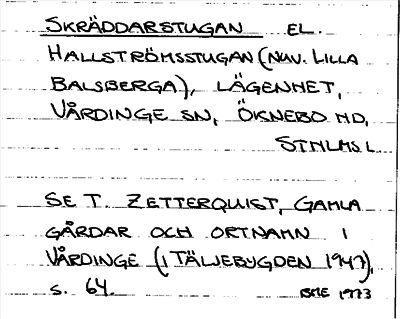 SKRÄDDARSTUGAN EL.
HALLSTRÖMSSTUGAN (NUV. LILLA
BALSBERGA), LÄGENHET,
VÅRDINGE SN, ÖKNEBO HD,
STHLMS L.
SE T. ZETTERQUIST, GAMLA
GÅRDAR OCH ORTNAMN I
VÅRDINGE (I TÄLJEBYGDEN 1947),
S. 64.
1973